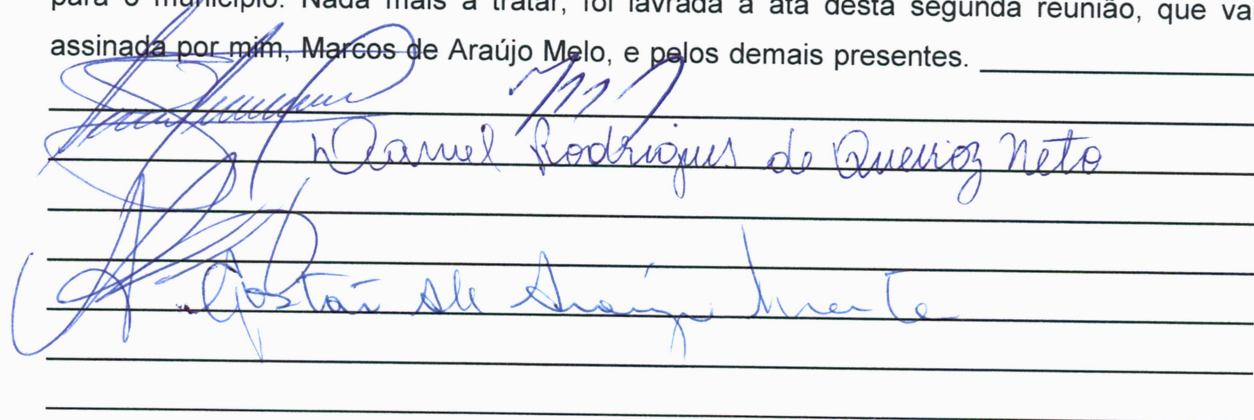 para o município. Nada mais a tratar, foi lavrada a ata desta segunda reunião, que va
assinada por mim, Marcos de Araújo Melo, e pelos demais presentes.
Daniel Rodrigues de Queiroz Neto
de Araújo